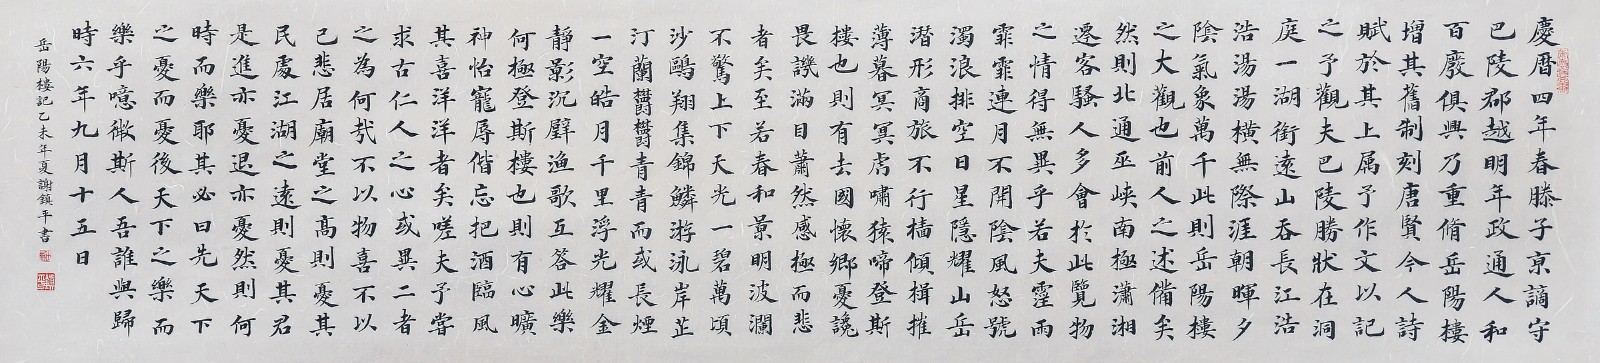 慶曆四年春滕子京謫守
巴陵郡越明年政通人和
百廢俱興乃重脩岳陽樓
增其舊制刻唐賢今人詩
賦於其上属予作文以記
之予觀夫巴陵勝狀在洞
庭一湖銜遠山吞長江浩
浩湯湯橫無際涯朝暉夕
陰氣象萬千此則岳陽樓
之大觀也前人之述備矣
然則北通巫峽南極瀟湘
遷客騷人多會於此覽物
之情得無異乎若夫霪雨
霏霏連月不開陰風怒號
濁浪排空日星隱耀山岳
潜形商旅不行檣傾楫摧
薄暮冥冥虎嘯猿啼登斯
樓也則有去國懷鄉憂讒
畏譏滿目蕭然感極而悲
者矣至若春和景明波瀾
不驚上下天光一碧萬頃
沙鷗翔集錦鱗游泳岸芷
汀蘭欝欝青青而或長煙
一空皓月千里浮光耀金
靜影沉璧渔歌互答此樂
何極登斯樓也則有心曠
神怡寵辱偕忘把酒臨風
其喜洋洋者矣嗟夫予嘗
求古仁人之心或異二者
之為何哉不以物喜不以
己悲居廟堂之高則憂其
民處江湖之遠則憂其君
是進亦憂退亦憂然則何
時而樂耶其必曰先天下
之憂而憂後天下之樂而
樂乎噫微斯人吾誰與歸
時六年九月十五日
岳陽樓記乙未年夏謝鎮平書